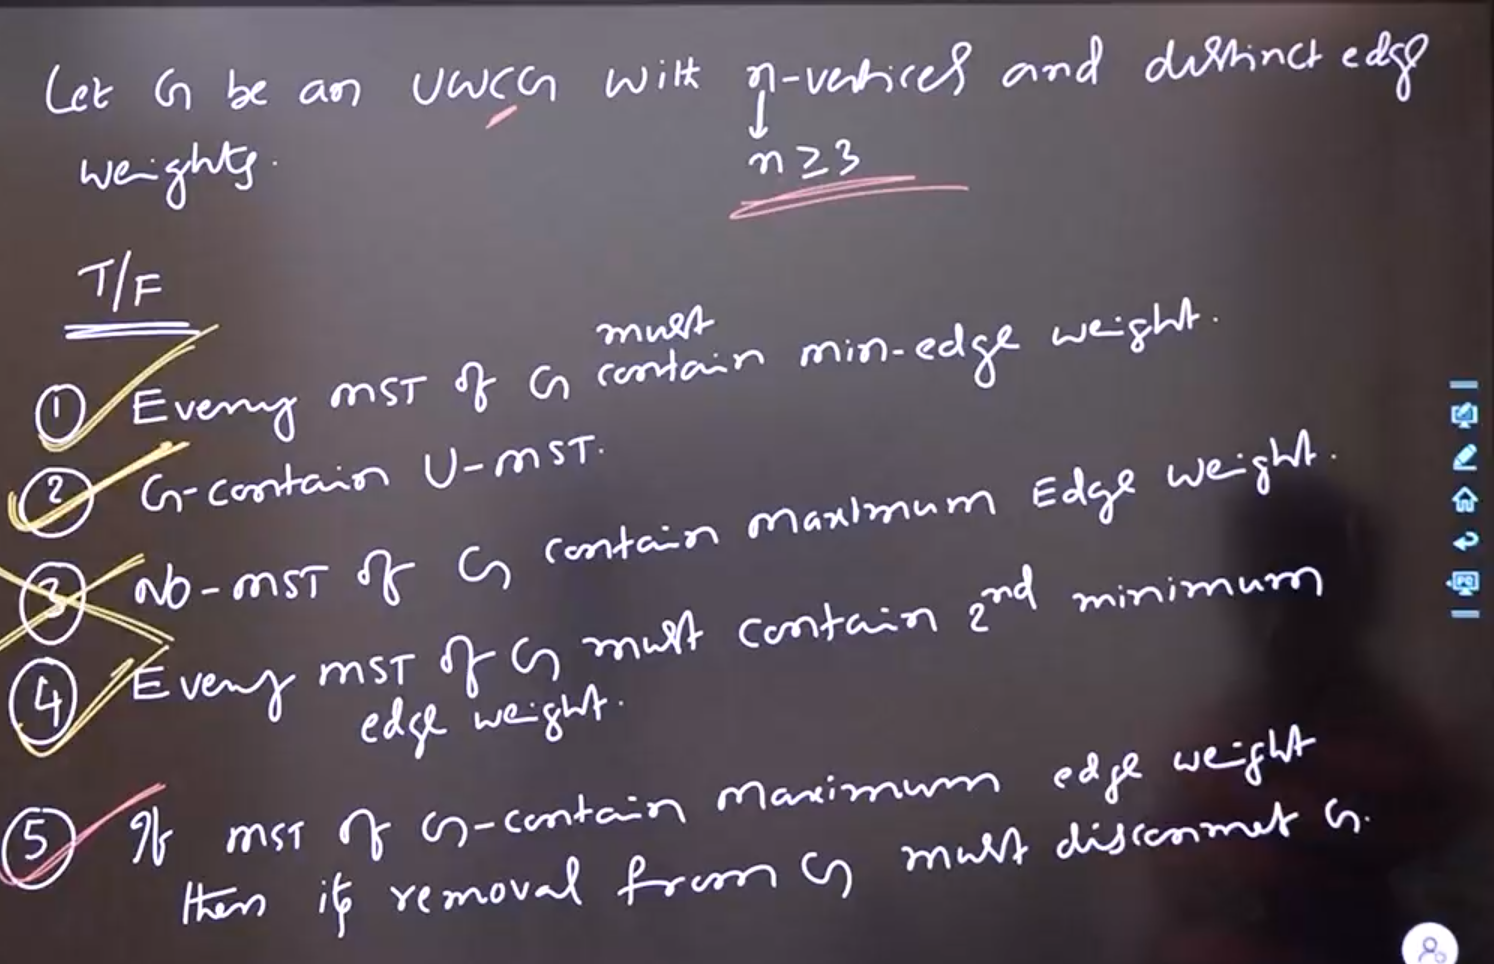 Let G be an UWCG with n-vertices and distinct edge
weights.
n ≥ 3
T/F
① Every MST of G must contain min-edge weight.
② G-contain U-MST.
③ No-MST of G contain maximum Edge weight.
④ Every MST of G must contain 2nd minimum
edge weight.
⑤ If MST of G-contain maximum edge weight
then its removal from G must disconnect G.